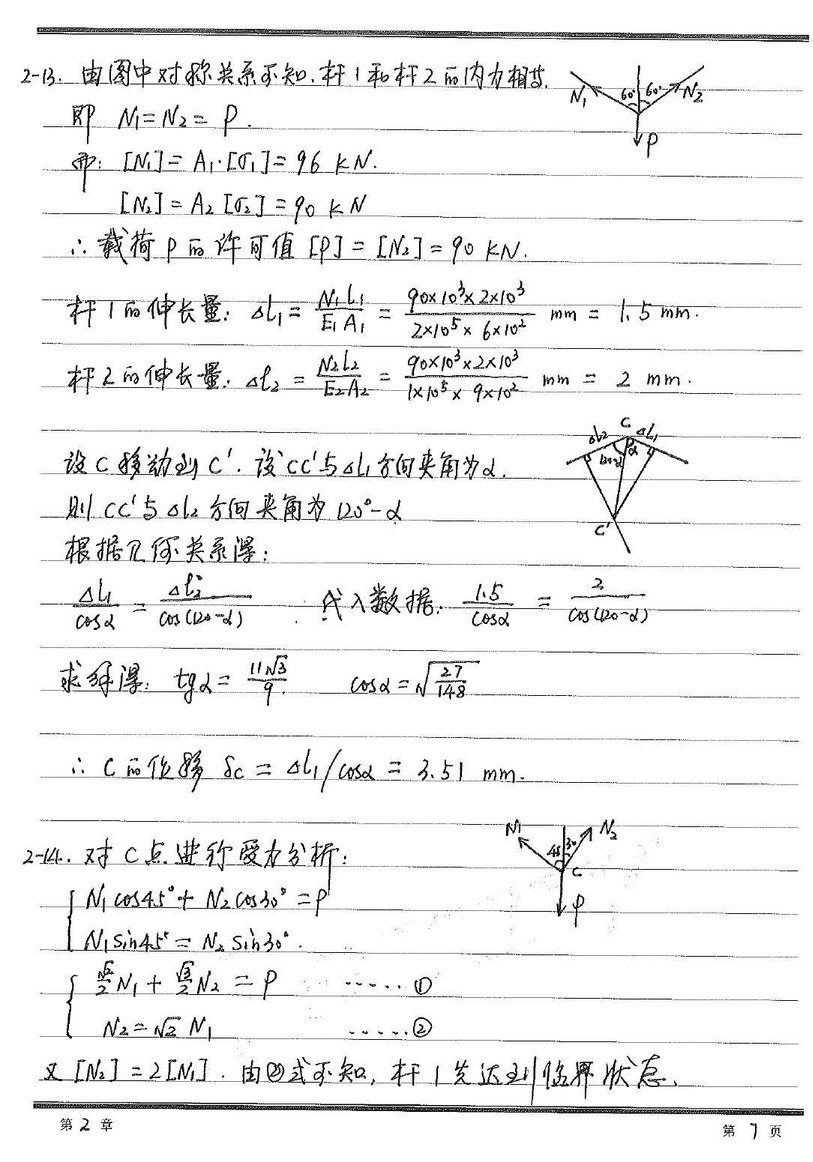 2-13. 由图中对称关系可知,杆1和杆2的内力相等,
N₁ 60° 60° N₂
P
即 N₁=N₂= P.
而: [N₁]= A₁·[σ₁]=96 kN.
[N₂]=A₂[σ₂]=90 kN
∴ 载荷P的许可值 [P]=[N₂]=90 kN.
杆1的伸长量: ΔL₁ = N₁L₁/E₁A₁ = 90×10³×2×10³/2×10⁵×6×10² mm = 1.5 mm.
杆2的伸长量: Δl₂ = N₂l₂/E₂A₂ = 90×10³×2×10³/1×10⁵×9×10² mm = 2 mm.
Δl₂ C ΔL₁
120-α α
C'
设C移动到C'. 设CC'与ΔL₁方向夹角为α.
则CC'与Δl₂方向夹角为120°-α
根据几何关系得:
ΔL₁/cosα = Δl₂/cos(120-α) . 代入数据: 1.5/cosα = 2/cos(120-α)
求解得: tgα = 11√3/9. cosα = √(27/148)
∴ C的位移 δc = ΔL₁/cosα = 3.51 mm.
2-14. 对C点进行受力分析:
N₁ 45 30° N₂
C
P
{ N₁cos45°+ N₂cos30° =P
N₁sin45°= N₂ sin30°.
{ √2/2 N₁ + √3/2 N₂ = P ······ ①
N₂=√2 N₁ ······②
又 [N₂] =2[N₁] . 由②式可知, 杆1先达到临界状态.
第 2 章
第 7 页